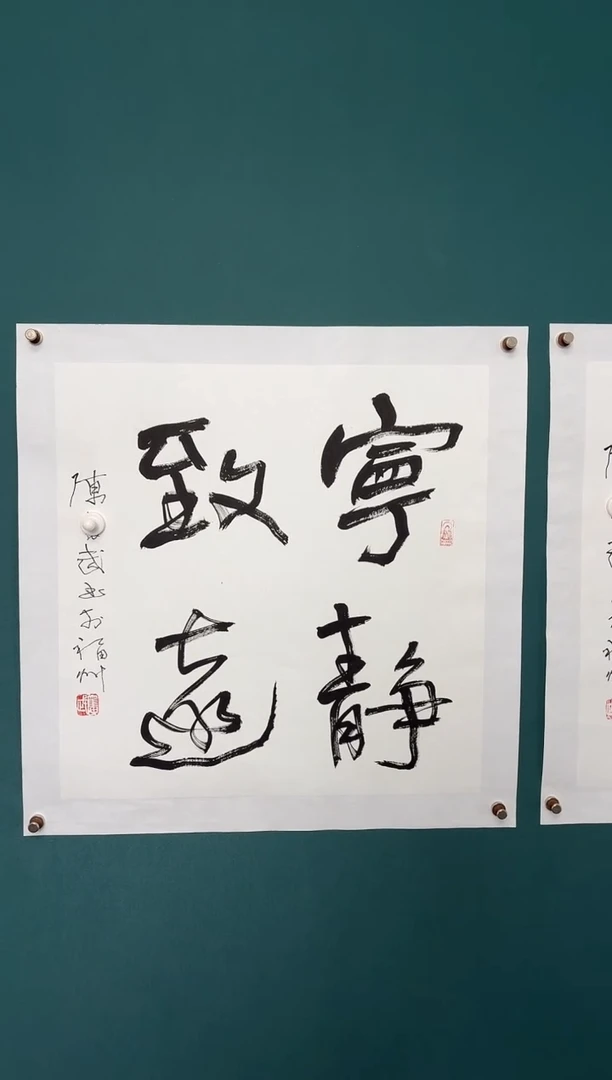 寧靜
致遠
陳 武書於福州